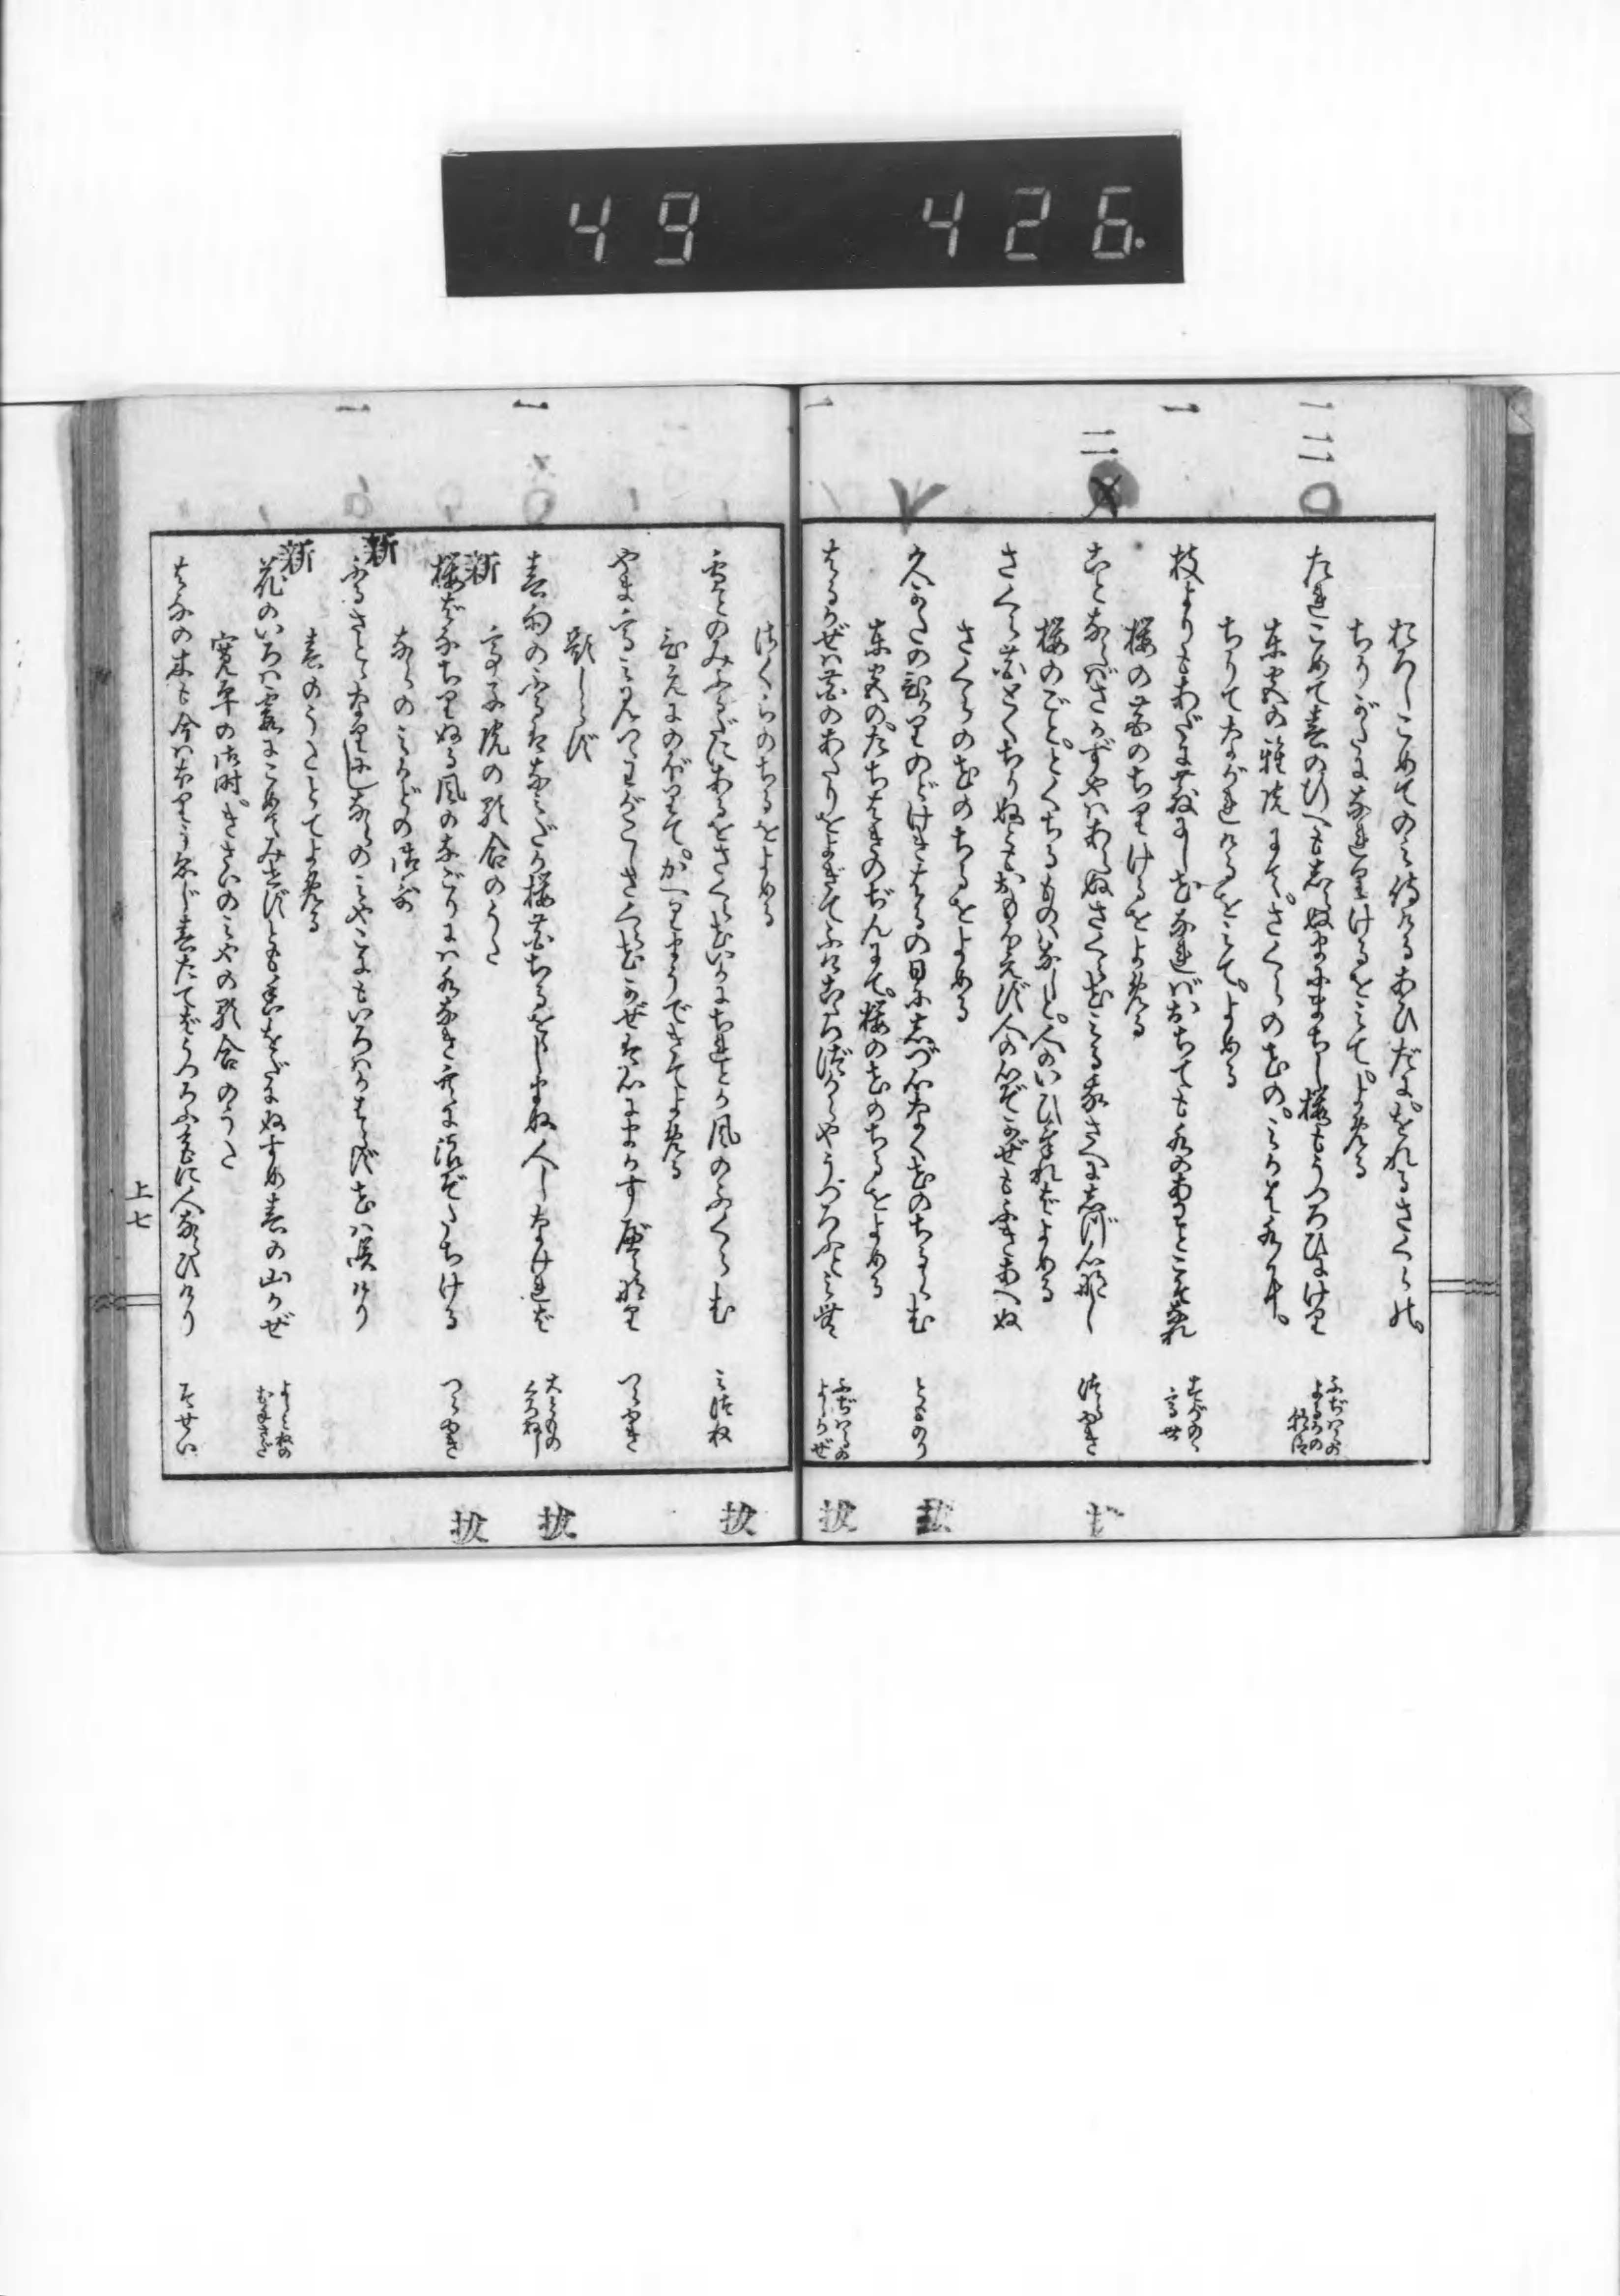 49 426.
一二一
一
二
一
おろしこめてのみ侍けるあひだに。をれるさくらの。
ちりがたになれりけるをみて。よめる
たれこめて春のゆくへもしらぬまにまちし桜もうつろひにけり
ふぢはらのよるかの朝臣
東宮の雅院にて。さくらの花の。みかは水に。
ちりてながれけるをみて。よめる
枝よりもあだにちりにし花なればおちても水のあわとこそなれ
すがのの高世
桜の花のちりけるをよめる
ことならばさかずやはあらぬさくら花みる我さへにしづ心なし
つらゆき
桜のごと。とくちるものはなしと。人のいひければよめる
さくら花とくちりぬともおもほえず人の心ぞかぜもふきあへぬ
さくらの花のちるをよめる
久かたのひかりのどけきはるの日にしづ心なく花のちるらむ
とものり
東宮の。たちはきのぢんにて。桜の花のちるをよめる
はるかぜは花のあたりをよぎてふけ心づからやうつろふとみむ
ふぢはらのよしかぜ
抜
抜
一
一
さくらのちるをよめる
雪とのみふるだにあるをさくら花いかにちれとか風のふくらむ
みつね
ひえにのぼりて。かへりまうできてよめる
やまたかみみつつわがこしさくら花かぜは心にまかすべらなり
つらゆき
題しらず
春雨のふるは涙か桜花ちるををしまぬ人しなければ
大とものくろぬし
亭子院の歌合のうた
新
桜花ちりぬる風のなごりには水なき空に浪ぞたちける
つらゆき
ならのみかどの御哥
新
ふるさととなりにしならのみやこにもいろはかはらず花は咲けり
春のうたとてよめる
新
花のいろは霞にこめてみせずとも香をだにぬすめ春の山かぜ
よしみねのむねさだ
寛平の御時。きさいのみやの歌合のうた
はなの木も今はほりうゑじ春たてばうつろふ色に人ならひけり
そせい
上七
抜
抜
抜